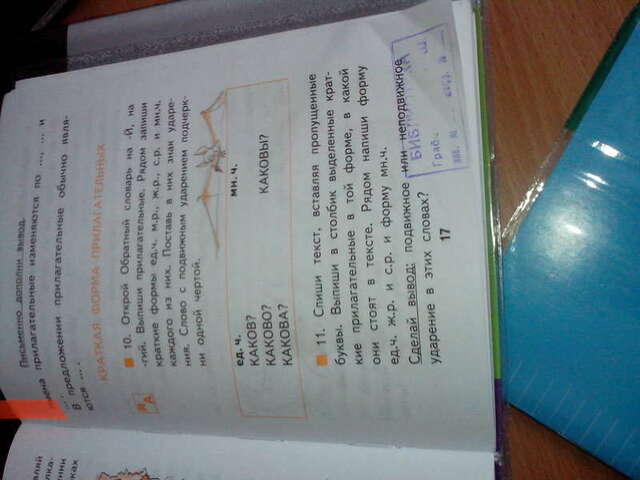 Письменно дополни вывод.
мена прилагательные изменяются по ..., ... и
... .
В предложении прилагательные обычно явля-
ются ... .
КРАТКАЯ ФОРМА ПРИЛАГАТЕЛЬНЫХ
10. Открой Обратный словарь на -й, на
-гий. Выпиши прилагательные. Рядом запиши
краткие формы ед.ч. м.р., ж.р., с.р. и мн.ч.
каждого из них. Поставь в них знак ударе-
ния. Слово с подвижным ударением подчерк-
ни одной чертой.
ед.ч. мн.ч.
КАКОВ? КАКОВЫ?
КАКОВО?
КАКОВА?
11. Спиши текст, вставляя пропущенные
буквы. Выпиши в столбик выделенные крат-
кие прилагательные в той форме, в какой
они стоят в тексте. Рядом напиши форму
ед.ч. ж.р. и с.р. и форму мн.ч.
Сделай вывод: подвижное или неподвижное
ударение в этих словах?
17